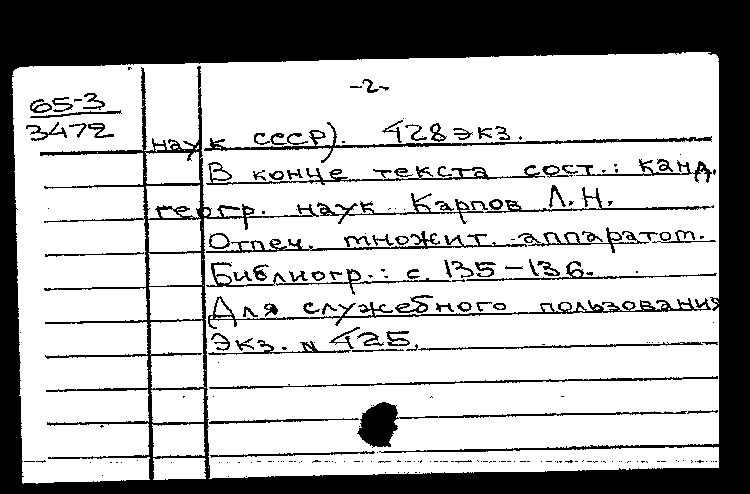 -2-
65-3
3472
наук СССР). 428 экз.
В конце текста сост.: канд.
геогр. наук Карпов Л.Н.
Отпеч. множит. аппаратом.
Библиогр.: с. 135-136.
Для служебного пользования
Экз. N 425.